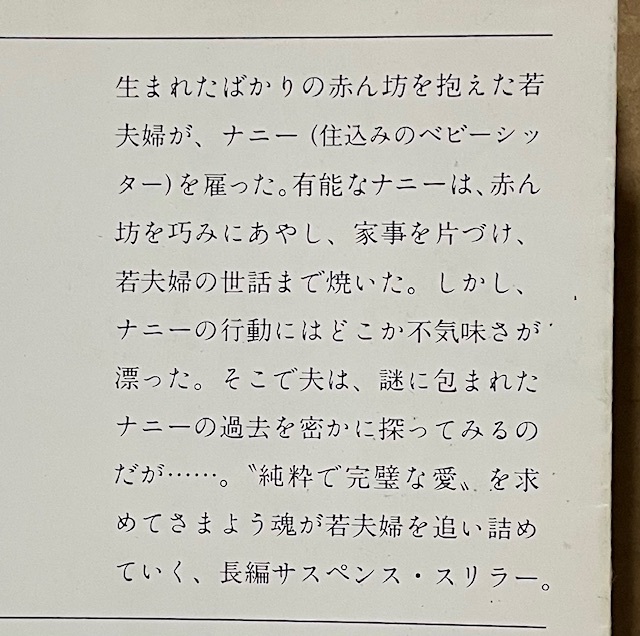 生まれたばかりの赤ん坊を抱えた若
夫婦が、ナニー(住込みのベビーシッ
ター)を雇った。有能なナニーは、赤ん
坊を巧みにあやし、家事を片づけ、
若夫婦の世話まで焼いた。しかし、
ナニーの行動にはどこか不気味さが
漂った。そこで夫は、謎に包まれた
ナニーの過去を密かに探ってみるの
だが……。〝純粋で完璧な愛〟を求
めてさまよう魂が若夫婦を追い詰め
ていく、長編サスペンス・スリラー。